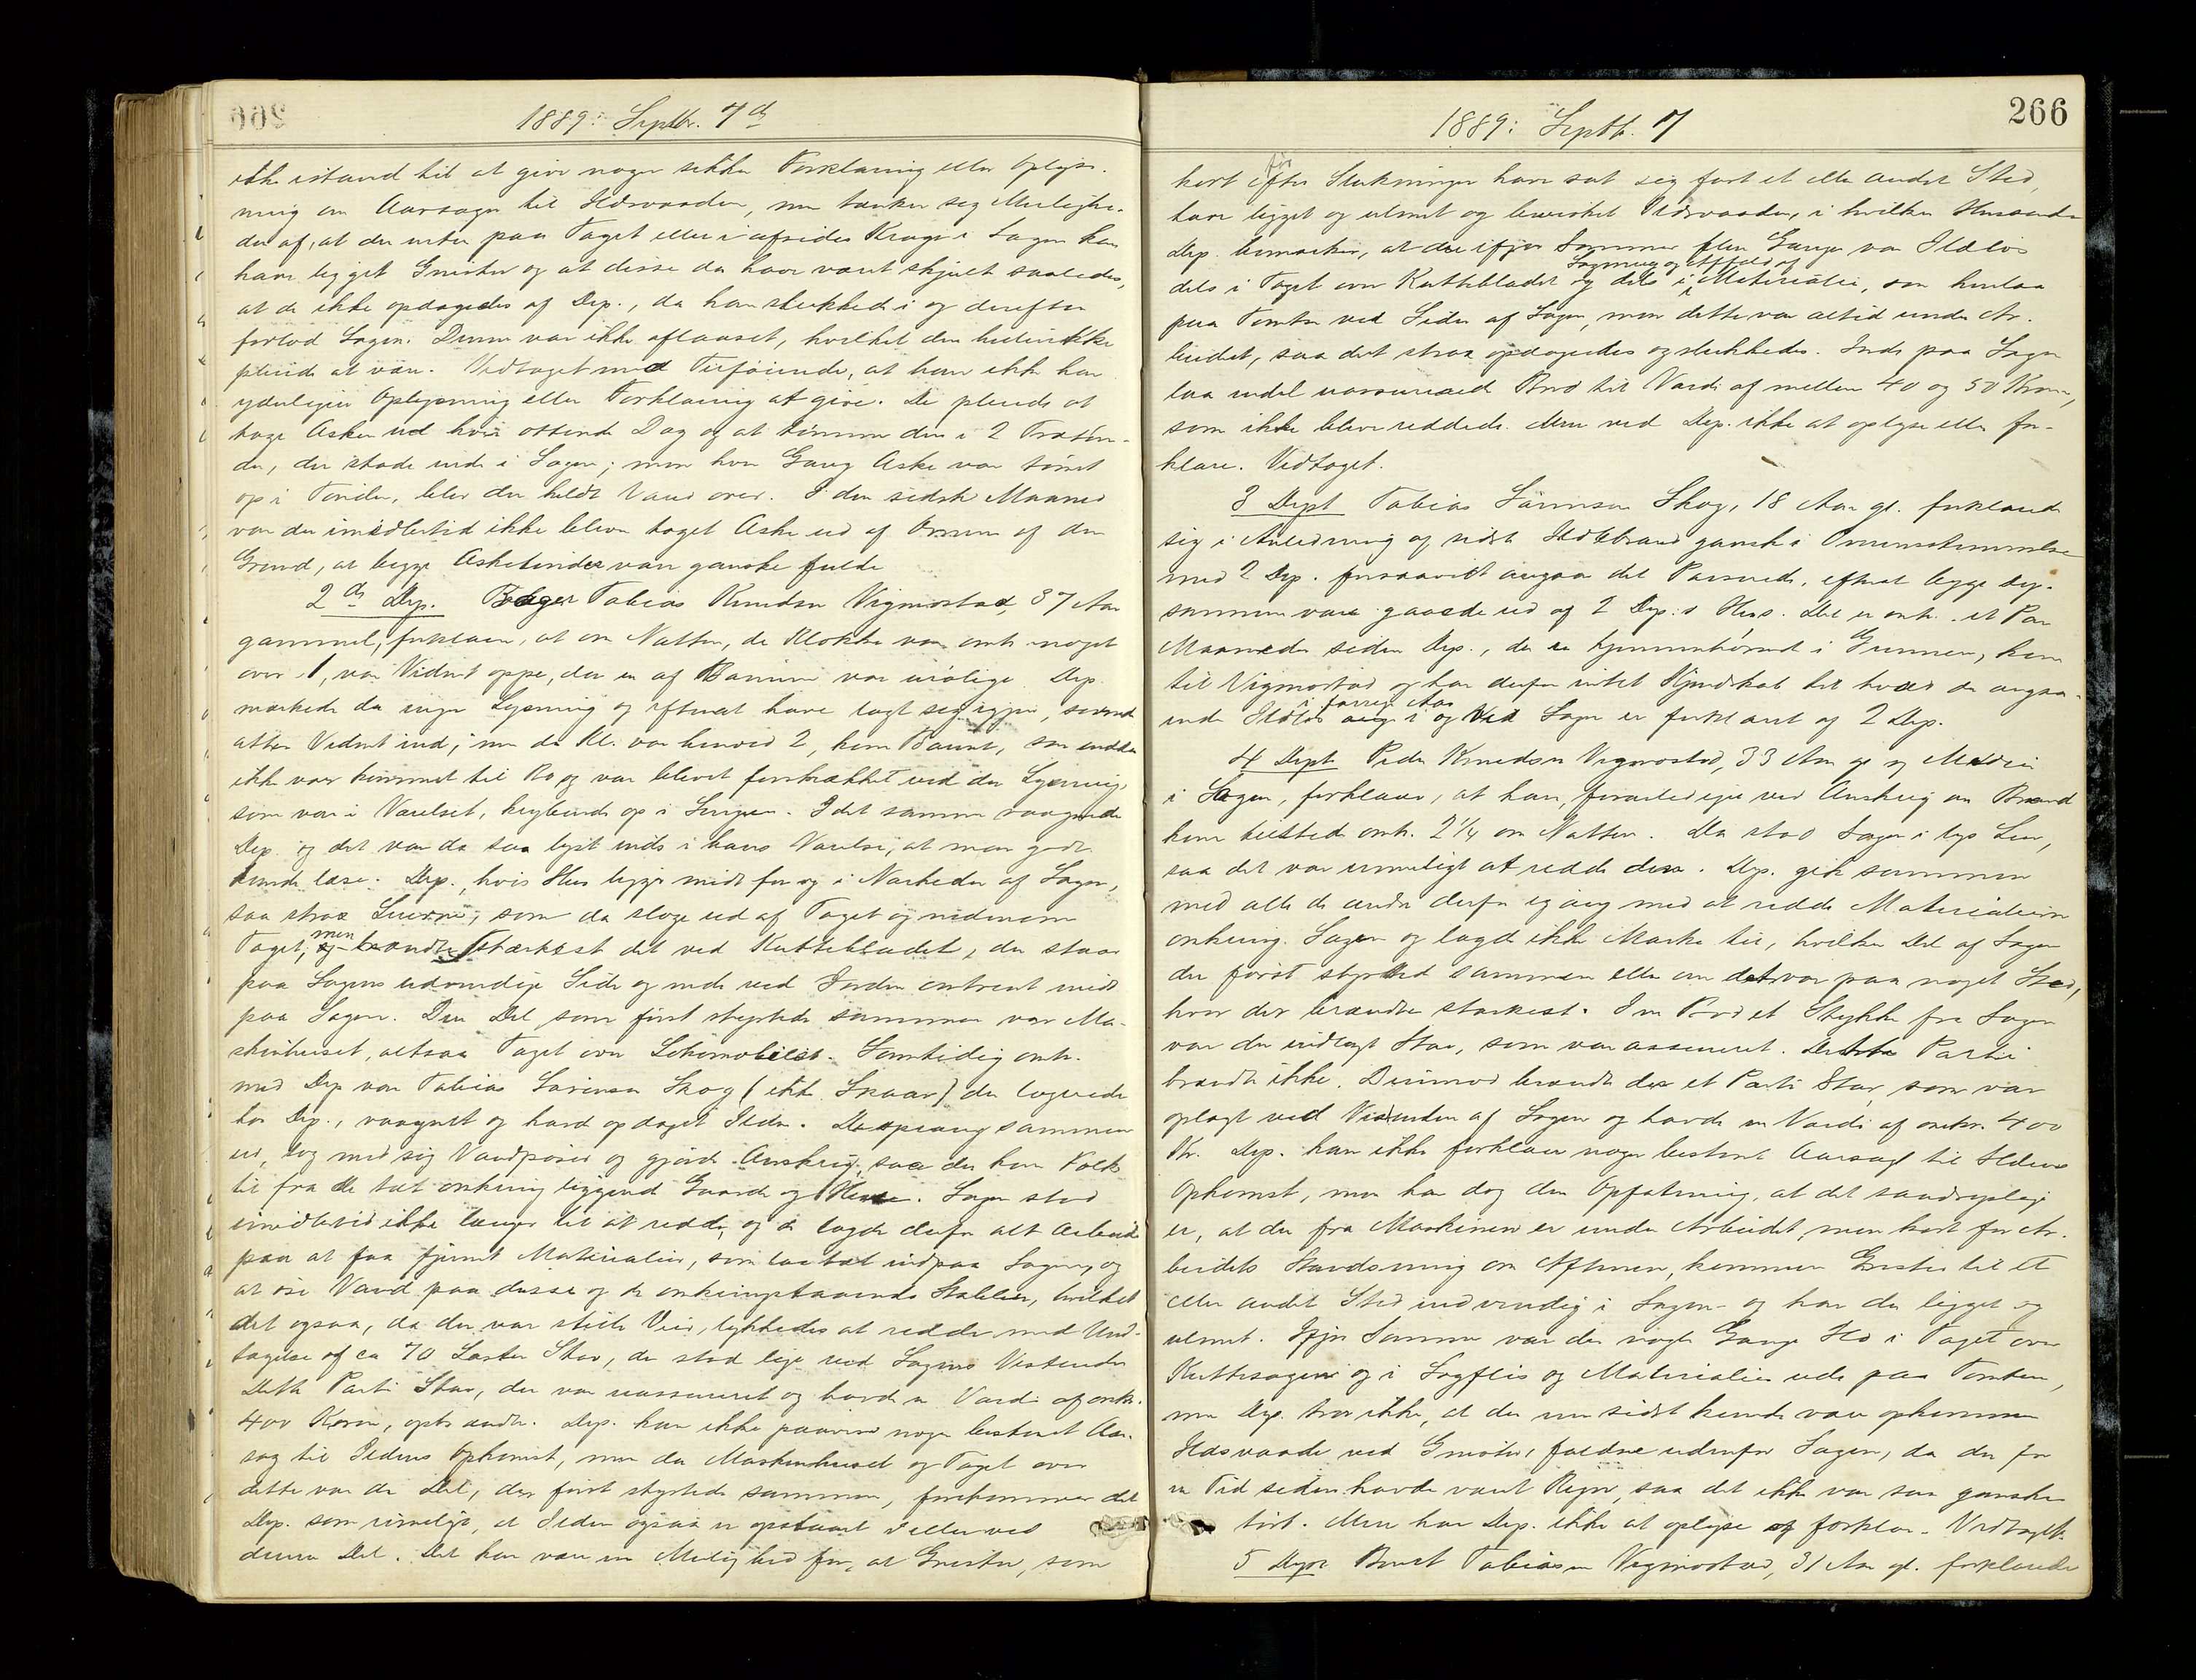 1889: Septbr. 7d
ikke istand til at give nogen sikker Forklaring eller Oplys-
ning om Aarsagen til Ildsvaaden, men tænker sig Mulighe-
den af, at der enten paa Taget eller i afsides Kroge i Sagen kan
have ligget Gnister og at disse da have været skjult saaledes,
at de ikke opdagedes af Dep., da han slukkede i og derefter
forlod Sagen. Denne var ikke aflaaset, hvilket den heller ikke
pleiede at være. Vedtaget med Tilføiende, at han ikke har
yderligere Oplysning eller Forklaring at give. De pleiede at
tage Asken ud hver ottende Dag og at tømme den i 2 Trætøn-
der, der stode inde i Sagen; men hver Gang Aske var tømt
op i Tønder, blev der heldt Vand over. I den sidste Maaned
var der imidlertid ikke bleven taget Aske ud af Ovnen af den
Grund, at begge Asketønder vare ganske fulde
2den Dep. Tobias Knudsen Vigmostad, 37 Aar
gammel, forklarer, at om Natten, da Klokken var omtr. noget
over 1, var Vidnet oppe, da en af Børnene var urolige. Dep.
mærkede da ingen Lysning og efterat have lagt sig igjen, sovnede
atter Vidnet ind; men da Kl. var henved 2, kom Barnet, som endda
ikke var kommet til Ro og var blevet forskrækket ved den Lysning,
som var i Værelset, krybende op i Sengen. I det samme vaagnede
Dep. og det var da saa lyst inde i hans Værelse, at man godt
kunde læse. Dep., hvis Hus ligger midt for og i Nærheden af Sagen,
saa strax Luerne, som da sloge ud af Taget og nedenom
Taget, men brændte stærkest det ved Kuttebladet, der staar
paa Sagens udvendige Side og nede ved Jorden omtrent midt
paa Sagen. Den Del som først styrtede sammen var Ma-
skinhuset, altsaa Taget over Lokomobilet. Samtidig omtr.
med Dep var Tobias Sørensen Skog (ikke Skaar) der logerede
hos Dep., vaagnet og havd opdaget Ilden. De sprang sammen
ud, tog med sig Vandpøser og gjorde Anskrig, saa der kom Folk
til fra de tæt omkring liggende Gaarde og Huse. Sagen stod
imidlertid ikke længer til at redde, og de lagde derfor alt Arbeide
paa at faa fjernet Materialier, som laa tæt indpaa Sagen, og
at øse Vand paa disse og de omkringstaaende Stabler, hvilket
det ogsaa, da der var stille Veir, lykkedes at redde med Und-
tagelse af ca 70 Læster Stav, der stod lige ved Sagens Vestende
Dette Parti Stav, der var uassureret og havde en Værdi af omtr.
400 Kroner, opbrændte. Dep. kan ikke paavise nogen bestemt Aar-
sag til Ildens Opkomst, men da Maskinhuset og Taget over
dette var de Del, der først styrtede sammen, forekommer det
Dep. som rimeligt, at Ilden ogsaa er opstaaet i eller ved
denne Del. Det kan være en Mulighed for, at Gnister, som
1889: Septb. 7
266
kort før Slukningen have sat sig fast et eller andet Sted,
have ligget og ulmet og bevirket Ildsvaaden, i hvilken Henseende
Dep. bemærker, at der ifjor Sommer flere Gange var Ildløs
Sagmug og Affald af
dels i Taget over Kuttebladet og dels i Materialier, som henlaa
paa Tomten ved Siden af Sagen, men dette var altid under Ar-
beidet, saa det strax opdagedes og slukkedes. Inde paa Sagen
laa endel uassurerede Bord til Værdi af mellem 40 og 50 Kroner,
som ikke bleve reddede. Mere ved Dep. ikke at oplyse eller for-
klare. Vedtaget.
3 Dept Tobias Sørensen Skog, 18 Aar gl. forklarede
sig i Anledning af sidste Ildebrand ganske i Overensstemmelse
med 2 Dep. forsaavidt angaar det Passerede, efterat begge dep.
sammen vare gaaede ud af 2 Dep.s Hus. Det er omtr. et Par
Maaneder siden Dep., der er hjemmehørende i Grummen, kom
til Vigmostad og har derfor intet Kjendskab til hvad der angaa-
i forrige Aar
ende Ildløs i og ved Sagen er forklaret af 2 Dep.
4 Dept. Peder Knudsen Vigmostad, 33 Aar gl og Medeier
i Sagen, forklarer, at han, foranlediget ved Anskrig om Brand
kom tilstede omtr. 2 1/4 om Natten. Da stod Sagen i lys Lue,
saa det var umuligt at redde den. Dep. gik sammen
med alle de andre derfor igang med at redde Materialierne
omkring Sagen og lagde ikke Mærke til, hvilken Del af Sagen
der først styrted sammen eller om det var paa noget Sted,
hvor der brændte stærkest. I en Bod et Stykke fra Sagen
var der indlagt Stav, som var assureret. Dette Parti
brændte ikke. Derimod brændte der et Parti Stav, som var
oplagt ved Vestenden af Sagen og havde en Værdi af omtr. 400
Kr. Dep. kan ikke forklare nogen bestemt Aarsag til Ildens
Opkomst, men har dog den Opfatning, at det sandsynlige
er, at der fra Maskinen er under Arbeidet, men kort for Ar-
beidets Standsning om Aftenen, kommen Gnister til et
eller andet Sted indvendig i Sagen og har der ligget og
ulmet. Ifjor Sommer var der nogle Gange Ild i Taget over
Kuttesagen og i Sagflis og Materialier ude paa Tomten,
men Dep. tror ikke, at der nu sidst kunde være opkommen
Ildsvaade ved Gnister faldne udenfor Sagen, da der for
en Tid siden havde været Regn, saa det ikke var saa ganske
tørt. Mere har Dep. ikke at oplyse og forklare. Vedtaget.
5 Dept Bernt Tobiasen Vigmostad, 31 Aar gl. forklarede